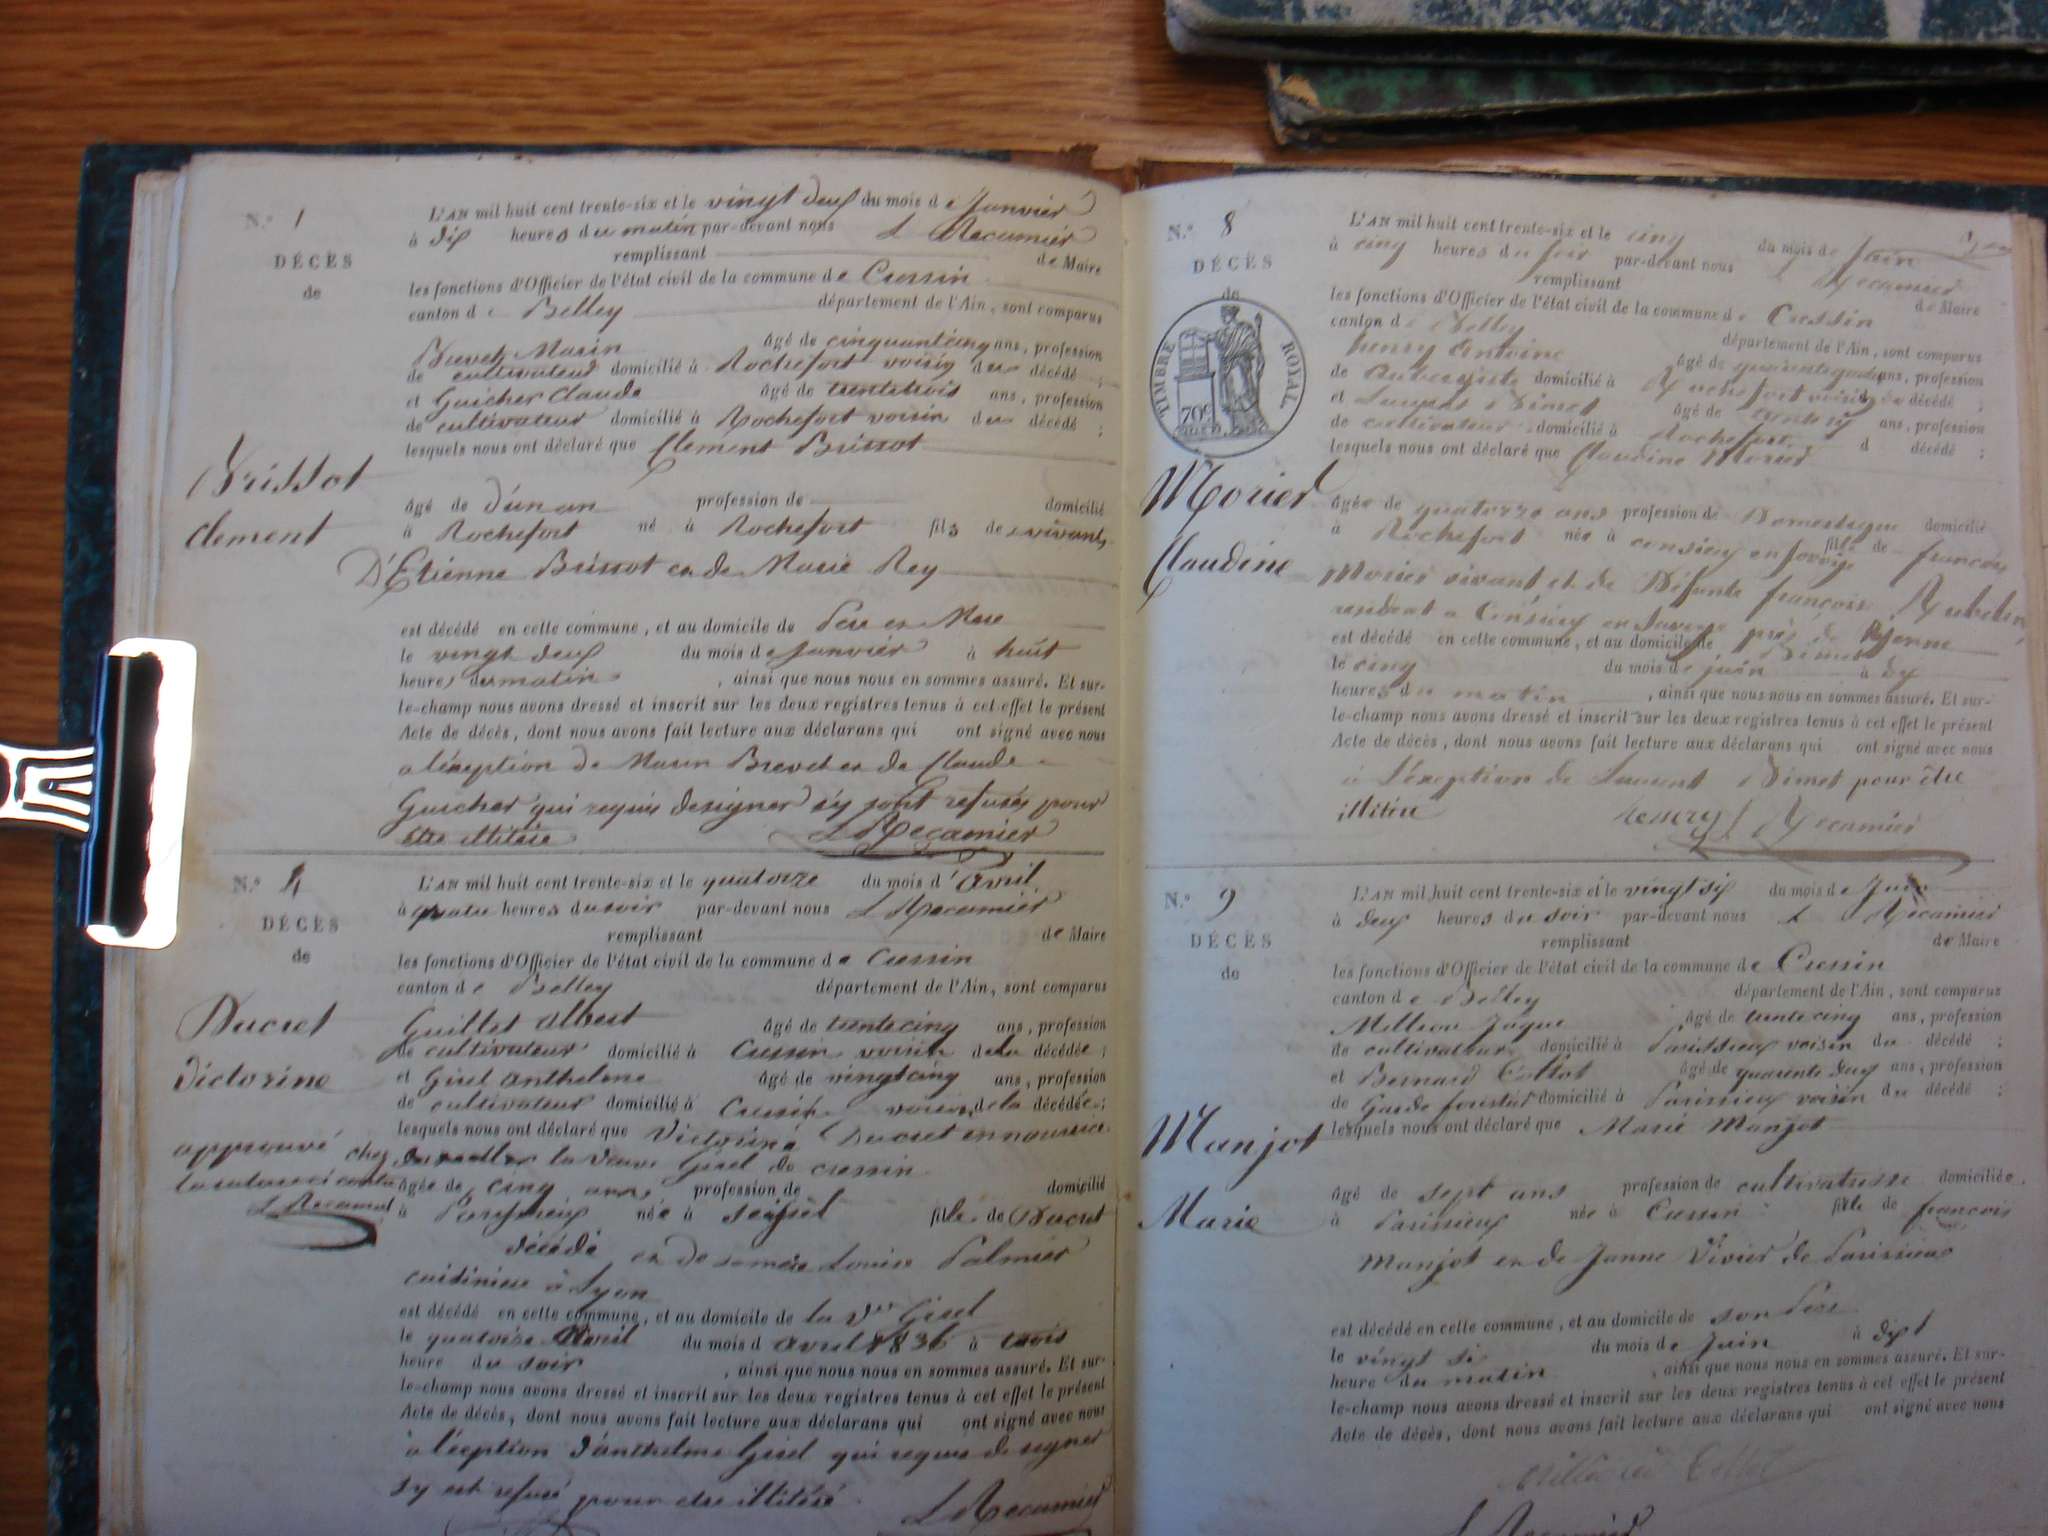 N.º 1
DÉCÈS
de
Brissot
Clement
L'AN mil huit cent trente-six et le vingt deux du mois de Janvier
à dix heures du matin par-devant nous L Recamier
remplissant de Maire
les fonctions d'Officier de l'état civil de la commune de Cressin
canton de Belley département de l'Ain, sont comparus
Brevet Marin âgé de cinquantecinq ans, profession
de cultivateur domicilié à Rochefort voisin du décédé ;
et Guicher Claude âgé de trentetrois ans, profession
de cultivateur domicilié à Rochefort voisin du décédé ;
lesquels nous ont déclaré que Clement Brissot
âgé de d'un an profession de domicilié
à Rochefort né à Rochefort fils de vivants
D'Etienne Brissot et de Marie Rey
est décédé en cette commune, et au domicile de Pere et Mere
le vingt deux du mois de Janvier à huit
heures du matin , ainsi que nous nous en sommes assuré. Et sur-
le-champ nous avons dressé et inscrit sur les deux registres tenus à cet effet le présent
Acte de décès, dont nous avons fait lecture aux déclarans qui ont signé avec nous
a l'éxeption de Marin Brevet et de Claude
Guicher qui requis designer s'y sont refusés pour
etre illitéré L Recamier
N.º 4
DÉCÈS
de
Ducret
Victorine
approuvé
la rature ci contre
L Recamier
L'AN mil huit cent trente-six et le quatorze du mois d'Avril
à quatre heures du soir par-devant nous L Recamier
remplissant de Maire
les fonctions d'Officier de l'état civil de la commune de Cressin
canton de Belley département de l'Ain, sont comparus
Guillet Albert âgé de trentecinq ans, profession
de cultivateur domicilié à Cressin voisin de la décédée ;
et Girel Anthelme âgé de vingtcinq ans, profession
de cultivateur domicilié à Cressin voisin de la décédée ;
lesquels nous ont déclaré que Victorine Ducret en nourrice
chez la veuve Girel de cressin
âgée de cinq ans profession de domicilié
à née à seissel fille de Ducret
décédé et de sa mère Louise Palmier
cuisiniere à Lyon
est décédé en cette commune, et au domicile de la Vve Girel
le quatorze Avril du mois d avril 1836 à trois
heure du soir , ainsi que nous nous en sommes assuré. Et sur-
le-champ nous avons dressé et inscrit sur les deux registres tenus à cet effet le présent
Acte de décès, dont nous avons fait lecture aux déclarans qui ont signé avec nous
a l'éxeption d'anthelme Girel qui requis de signer
s'y est refusé pour etre illitéré
L Recamier
N.º 8
DÉCÈS
de
TIMBRE ROYAL
70c
Morier
Claudine
L'AN mil huit cent trente-six et le cinq du mois de Juin
à cinq heures du soir par-devant nous Recamier
remplissant de Maire
les fonctions d'Officier de l'état civil de la commune de Cressin
canton de Belley département de l'Ain, sont comparus
henry Antoine âgé de ans, profession
de domicilié à Rochefort voisin du décédé ;
et Laurent Dimet âgé de trente six ans, profession
de cultivateur domicilié à Rochefort d décédé ;
lesquels nous ont déclaré que Claudine Morier
âgée de quatorze ans profession de Domestique domicilié
à Rochefort née à en fille de françois
Morier vivant et de Défunte françoise
résidant a en Savoye près de Yenne
est décédé en cette commune, et au domicile de Dimet
le cinq du mois de juin à dix
heures du matin , ainsi que nous nous en sommes assuré. Et sur-
le-champ nous avons dressé et inscrit sur les deux registres tenus à cet effet le présent
Acte de décès, dont nous avons fait lecture aux déclarans qui ont signé avec nous
a l'éxeption de Laurent Dimet pour être
illitéré henry Recamier
N.º 9
DÉCÈS
de
Manjot
Marie
L'AN mil huit cent trente-six et le vingt six du mois de Juin
à deux heures du soir par-devant nous L Recamier
remplissant de Maire
les fonctions d'Officier de l'état civil de la commune de Cressin
canton de Belley département de l'Ain, sont comparus
Jaque âgé de trente cinq ans, profession
de cultivateur domicilié à Parissieux voisin du décédé ;
et Bernard Cottot âgé de quarente deux ans, profession
de Garde forestier domicilié à Parissieux voisin du décédé ;
lesquels nous ont déclaré que Marie Manjot
âgé de sept ans profession de cultivatrisse domiciliée
à Parissieux née à Cressin fille de françois
Manjot et de Janne Vivier de Parissieux
est décédé en cette commune, et au domicile de son Pere
le vingt six du mois de Juin à sept
heure du matin , ainsi que nous nous en sommes assuré. Et sur-
le-champ nous avons dressé et inscrit sur les deux registres tenus à cet effet le présent
Acte de décès, dont nous avons fait lecture aux déclarans qui ont signé avec nous
L Recamier